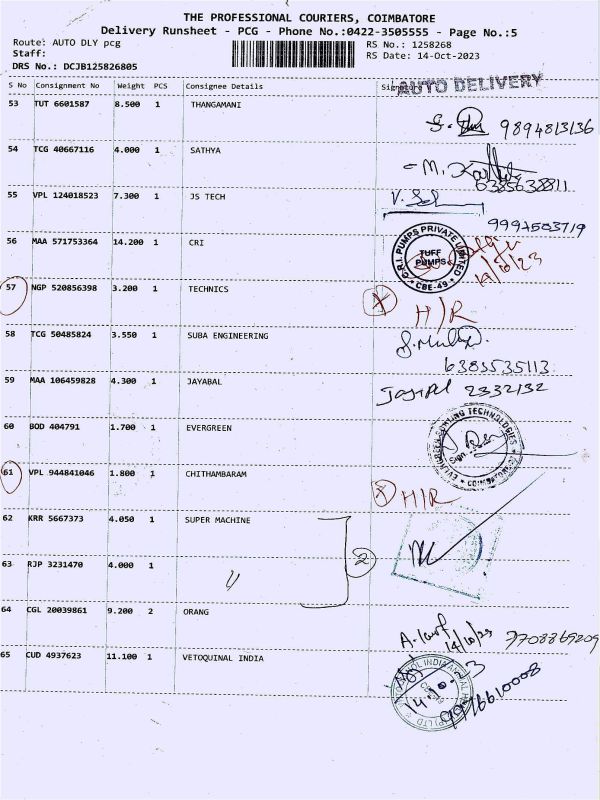 THE PROFESSIONAL COURIERS, COIMBATORE
Delivery Runsheet - PCG - Phone No.:0422-3505555 - Page No.:5
Route: AUTO DLY pcg RS No.: 1258268
Staff: RS Date: 14-Oct-2023
DRS No.: DCJB125826805
AUTO DELIVERY
S No Consignment No Weight PCS Consignee Details
53 TUT 6601587 8.500 1 THANGAMANI
9894813136
54 TCG 40667116 4.000 1 SATHYA
6385638811
55 VPL 124018523 7.300 1 JS TECH
9994503719
56 MAA 571753364 14.200 1 CRI
C.R.I. PUMPS PRIVATE LIMITED
TUFF
PUMPS
CBE-49
14/10/23
57 NGP 520856398 3.200 1 TECHNICS
X H/R
58 TCG 50485824 3.550 1 SUBA ENGINEERING
6385535113
59 MAA 106459828 4.300 1 JAYABAL
2332132
60 BOD 404791 1.700 1 EVERGREEN
61 VPL 944841046 1.800 1 CHITHAMBARAM
X H/R
62 KRR 5667373 4.050 1 SUPER MACHINE
2
63 RJP 3231470 4.000 1 〃
64 CGL 20039861 9.200 2 ORANG
14/10/23 7708869209
65 CUD 4937623 11.100 1 VETOQUINAL INDIA
14.10.23